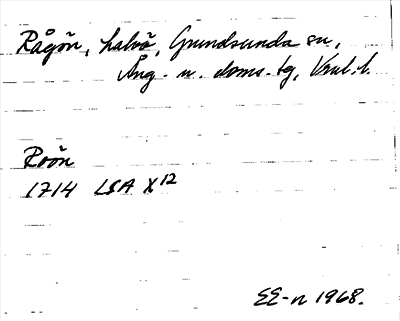 Rågön, halvö, Grundsunda sn.,
Ång. n. doms.-tg, Vnl. l.
Roön
1714 LSA X12
EE-n 1968.